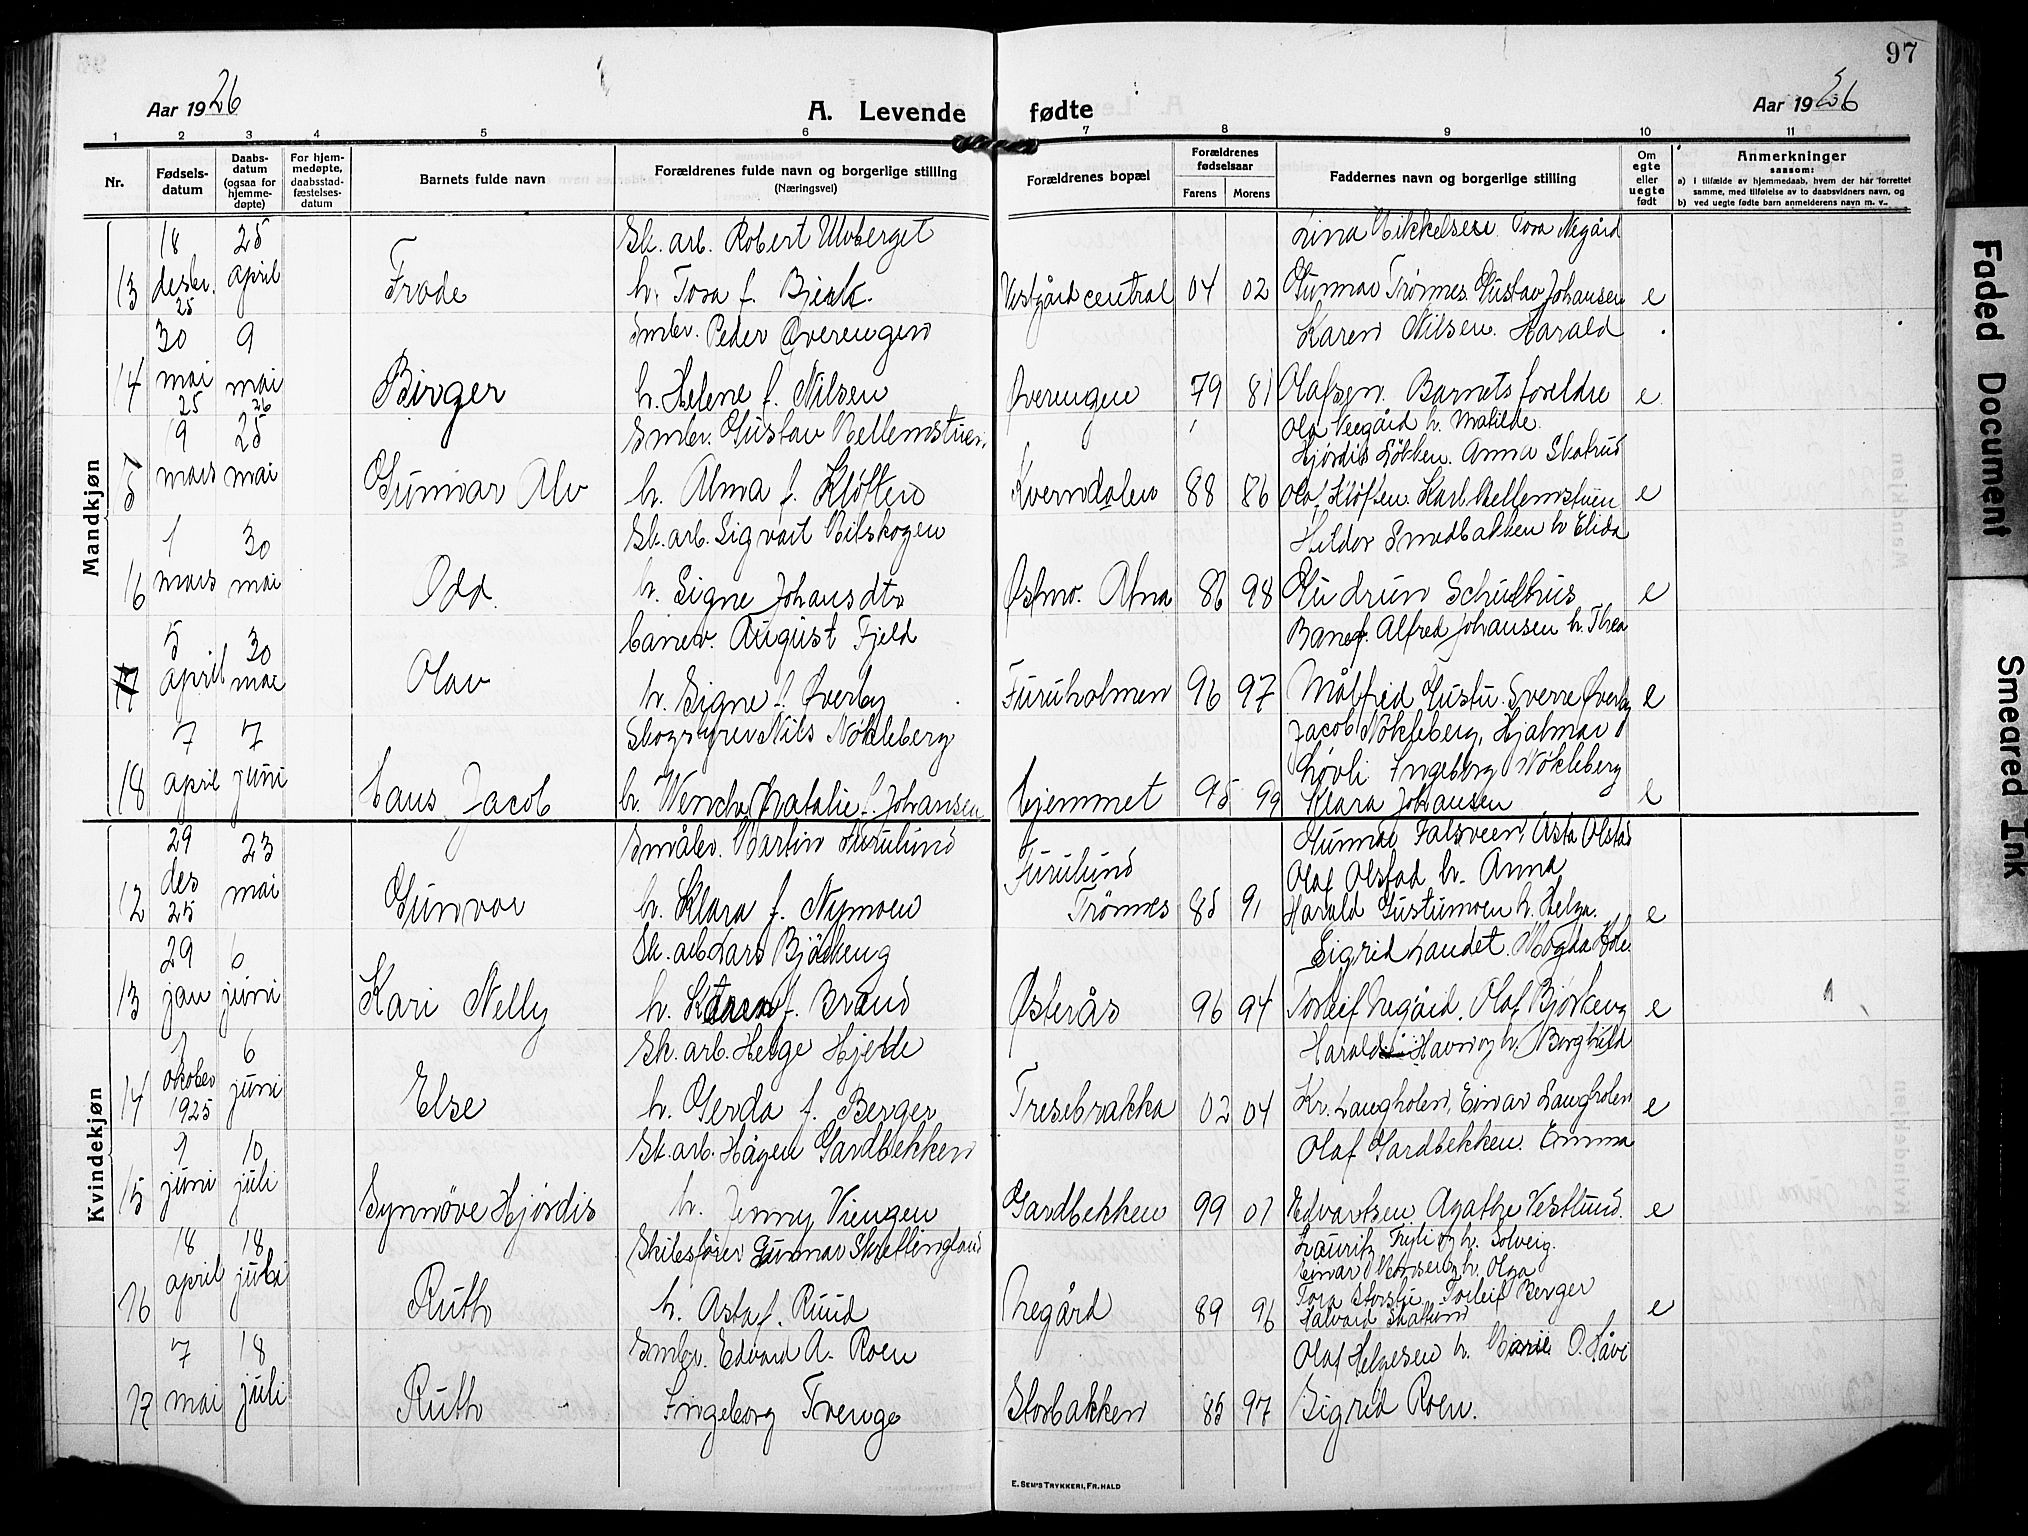 97
Aar 1926
A. Levende fødte
Aar 1926
1 2 3 4 5 6 7 8 9 10 11
Nr.
Fødsels-
datum
Daabs-
datum
(ogsaa for
hjemme-
døpte)
For hjem-
medøpte,
daabsstad-
fæstelses-
datum
Barnets fulde navn
Forældrenes fulde navn og borgerlige stilling
(Næringsvei)
Forældrenes bopæl
Forældrenes
fødselsaar
Farens Morens
Faddernes navn og borgerlige stilling
Om
egte
eller
uegte
født
Anmerkninger
saasom:
a) I tilfælde av hjemmedaab, hvem der har forrettet
samme, med tilføielse av to daabsvidners navn, og
b) ved uegte fødte barn anmelderens navn m. v..
Mandkjøn
13
18
desbr.
25
25
april
Frode
Sk. arb. Robert Ulvberget
h. Tora f. Bjerk.
Vestgård central
04 02
Lina Mikkelsen Tora Negård
Gunnar Trønnes. Gustav Johansen
e
14
30
mai
25
9
mai
26
Birger
Smbr. Peder Øverengen
h. Helene f. Nilsen
Øverengen
79 81
Karen Nilsen. Harald
Olafsen. Barnets foreldre
e
15
19
mars
25
mai
Gunnar Alv
Smbr. Gustav Mellemstuen
h. Alma f. Kløften
Kverndalen
88 86
Ola Neegård h. Matilde.
Hjørdis Løkken. Anna Skatrud
Olaf Kløften. Karl Mellemstuen
e
16
1
mars
30
mai
Odd
Sk. arb. Sigvart Nilskogen
h. Signe Johansdtr
Østmo. Atna
86 98
Hildor Smedbakken h Elida
Gudrun Schulhus
e
17
5
april
30
mai
Olav
banev. August Fjeld
h. Signe f. Øverby
Furuholmen
96 97
Banef. Alfred Johansen h. Thea
Målfrid Gustu. Sverre Øverby
e
18
7
april
7
juni
Hans Jacob
Skogstyrer Nils Nökleberg
h. Wenche Natalie f. Johansen
Hjemmet
95 99
Jacob Nökleberg, Hjalmar
Løvli Ingeborg Nökleberg
Klara Johansen
e
Kvindekjøn
12
29
des
25
23
mai
Gunvor
Småbr. Martin Furulund
h. Klara f. Nymoen
Furulund
Trønnes
85 91
Gunnar Falsveen, Asta Olstad
Olaf Olstad h. Anna
Harald Gustumoen h. Helga.
e
13
29
jan
6
juni
Kari Nelly
Sk. arb Lars Bjørkeng
h. Karen f. Brænd
Østerås
96 94
Sigrid Landet. Magda
Torleif Negård. Olaf Bjørkeng
e
14
1
oktober
1925
6
juni
Else
Sk. arb. Helge Hjelle
h. Gerda f. Berger
Tresebrakka
02 04
Harald Havn og h. Borghild
Kr. Langholen, Einar Langholen
e
15
1
juni
10
juli
Synnøve Hjørdis
Sk. arb. Hågen Gardbekken
h. Jenny Viengen
Gardbekken
99 01
Olaf Gardbekken. Emma
Edvartsen. Agathe Vestlund.
e
16
18
april
18
juli
Ruth
Skilesfører Gunnar Skrettingland
h. Asta f. Ruud
Negård
89 96
Lauritz Tryli og h. Solveig.
Einar og h. Olga
Tora Storstu Torleif Berger
Halvard Skatlund
e
17
7
mai
18
juli
Ruth
Smbr. Edvard A. Roen
Ingeborg Trenge
Storbakken
85 97
Olaf Helgesen h. Marie O. Håve
Sigrid Roen.
E. SEM'S TRYKKERI, FR.HALD
Faded Document
Smeared Ink